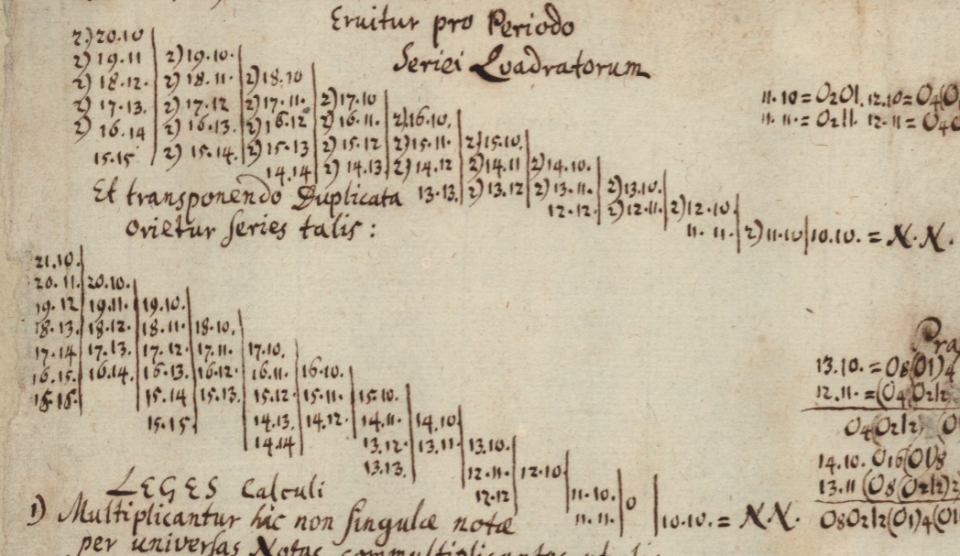 Eruitur pro Periodo
Seriei Quadratorum
2) 20.10
2) 19.11 | 2) 19.10.
2) 18.12. | 2) 18.11. | 2) 18.10
2) 17.13. | 2) 17.12 | 2) 17.11. | 2) 17.10
2) 16.14 | 2) 16.13. | 2) 16.12 | 2) 16.11. | 2) 16.10.
15.15 | 2) 15.14. | 2) 15.13 | 2) 15.12 | 2) 15.11. | 2) 15.10.
14.14 | 2) 14.13. | 2) 14.12 | 2) 14.11 | 2) 14.10.
13.13. | 2) 13.12 | 2) 13.11. | 2) 13.10.
12.12. | 2) 12.11. | 2) 12.10.
11.11. | 2) 11.10 | 10.10. = N.N.
11.10 = O2O1. 12.10 = O4(O
11.11. = O211. 12.11 = O4
Et transponendo Duplicata
orietur series talis:
21.10.
20.11. | 20.10.
19.12 | 19.11. | 19.10.
18.13. | 18.12. | 18.11. | 18.10.
17.14 | 17.13. | 17.12. | 17.11. | 17.10.
16.15. | 16.14. | 16.13. | 16.12. | 16.11. | 16.10.
15.14 | 15.13. | 15.12. | 15.11. | 15.10.
15.15. | 14.13. | 14.12. | 14.11. | 14.10.
14.14 | 13.12. | 13.11. | 13.10.
13.13. | 12.11. | 12.10
12.12 | 11.10. | 0
11.11. | 10.10. = N.N.
13.10. = O8(O1)4
12.11. = (O4(O212
O4(O212)
14.10. O16(O1)8
13.11 (O8(O212)2
O8O212(O1)4(O1
LEGES Calculi
1) Multiplicantur hic non singulæ notæ
per universas Notas